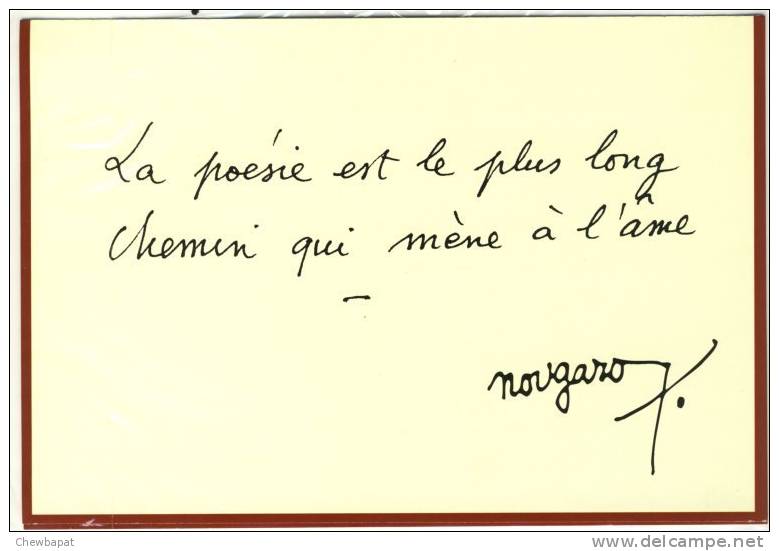 La poésie est le plus long
chemin qui mène à l'âme
nougaro
Chewbapat
delcampe.net